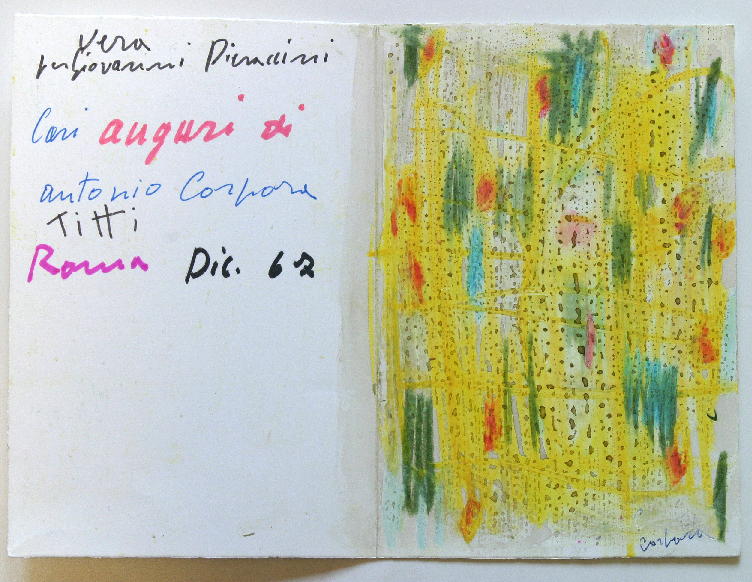 Vera
per Giovanni Pieraccini
Cari auguri di
antonio Corpora
Titti
Roma Dic. 62
Corpora